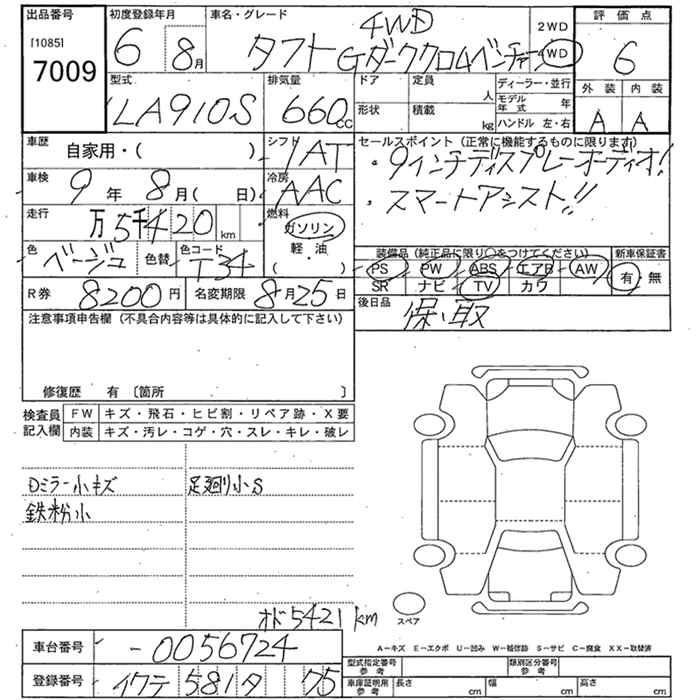 出品番号 初度登録年月 車名・グレード 4WD 2WD 評価点
[1085] 7009 6 8月 タフト Gダーククロムベンチャー 4WD 6
型式 排気量 ドア 定員 人 ディーラー・並行 外装 内装
LA910S 660cc 形状 積載 kg モデル年式 年 ハンドル 左・右 A A
車歴 自家用・( ) シフト IAT セールスポイント (正常に機能するものに限ります)
車検 9年 8月( 日) 冷房 AAC ・9インチディスプレーオーディオ!
・スマートアシスト!!
走行 万5千420km 燃料 ガソリン 軽・油 ( )
色 ベージュ 色替 色コード T34
装備品(純正品に限り○をつけてください) 新車保証書
PS PW ABS エアB AW 有・無
SR ナビ TV カワ
R券 8200円 名変期限 8月25日 後日品 保、取
注意事項申告欄 (不具合内容等は具体的に記入して下さい)
修復歴 有 〔箇所 〕
検査員記入欄 FW キズ・飛石・ヒビ割・リペア跡・X要
内装 キズ・汚レ・コゲ・穴・スレ・キレ・破レ
Dミラー小キズ 足廻り小S
鉄粉小
オド5421km
スペア
A－キズ E－エクボ U－凹み W－補修跡 S－サビ C－腐食 XX－取替済
車台番号 -0056724
型式指定番号 参考 類別区分番号 参考
登録番号 イワテ 581 タ 75
車庫証明用 参考 長さ cm 幅 cm 高さ cm